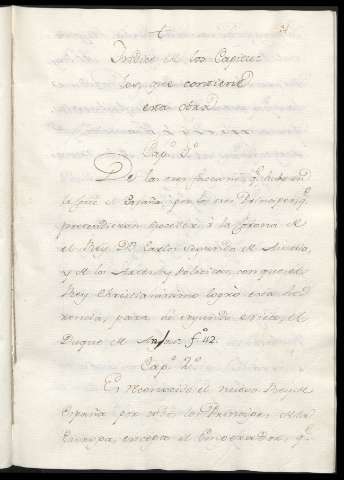 Indice de los Capitu-
los, que contiene
esta obra
Cap.º 1.º
De las tres facciones q.e hubo en
la Corte de España por los tres Principes, q.e
pretendieron suceder à la Corona de
el Rey D.n Carlos segundo de Austria,
y de los Ardides, politicas, con que el
Rey Christianissimo logrò esta he-
rencia, para su segundo nieto, el
Duque de Anjou. f.º 112.
Cap.º 2.º
Es reconocido el nuevo Rey de
España por todos los Principes de la
Europa, excepto el Emperador, q.e